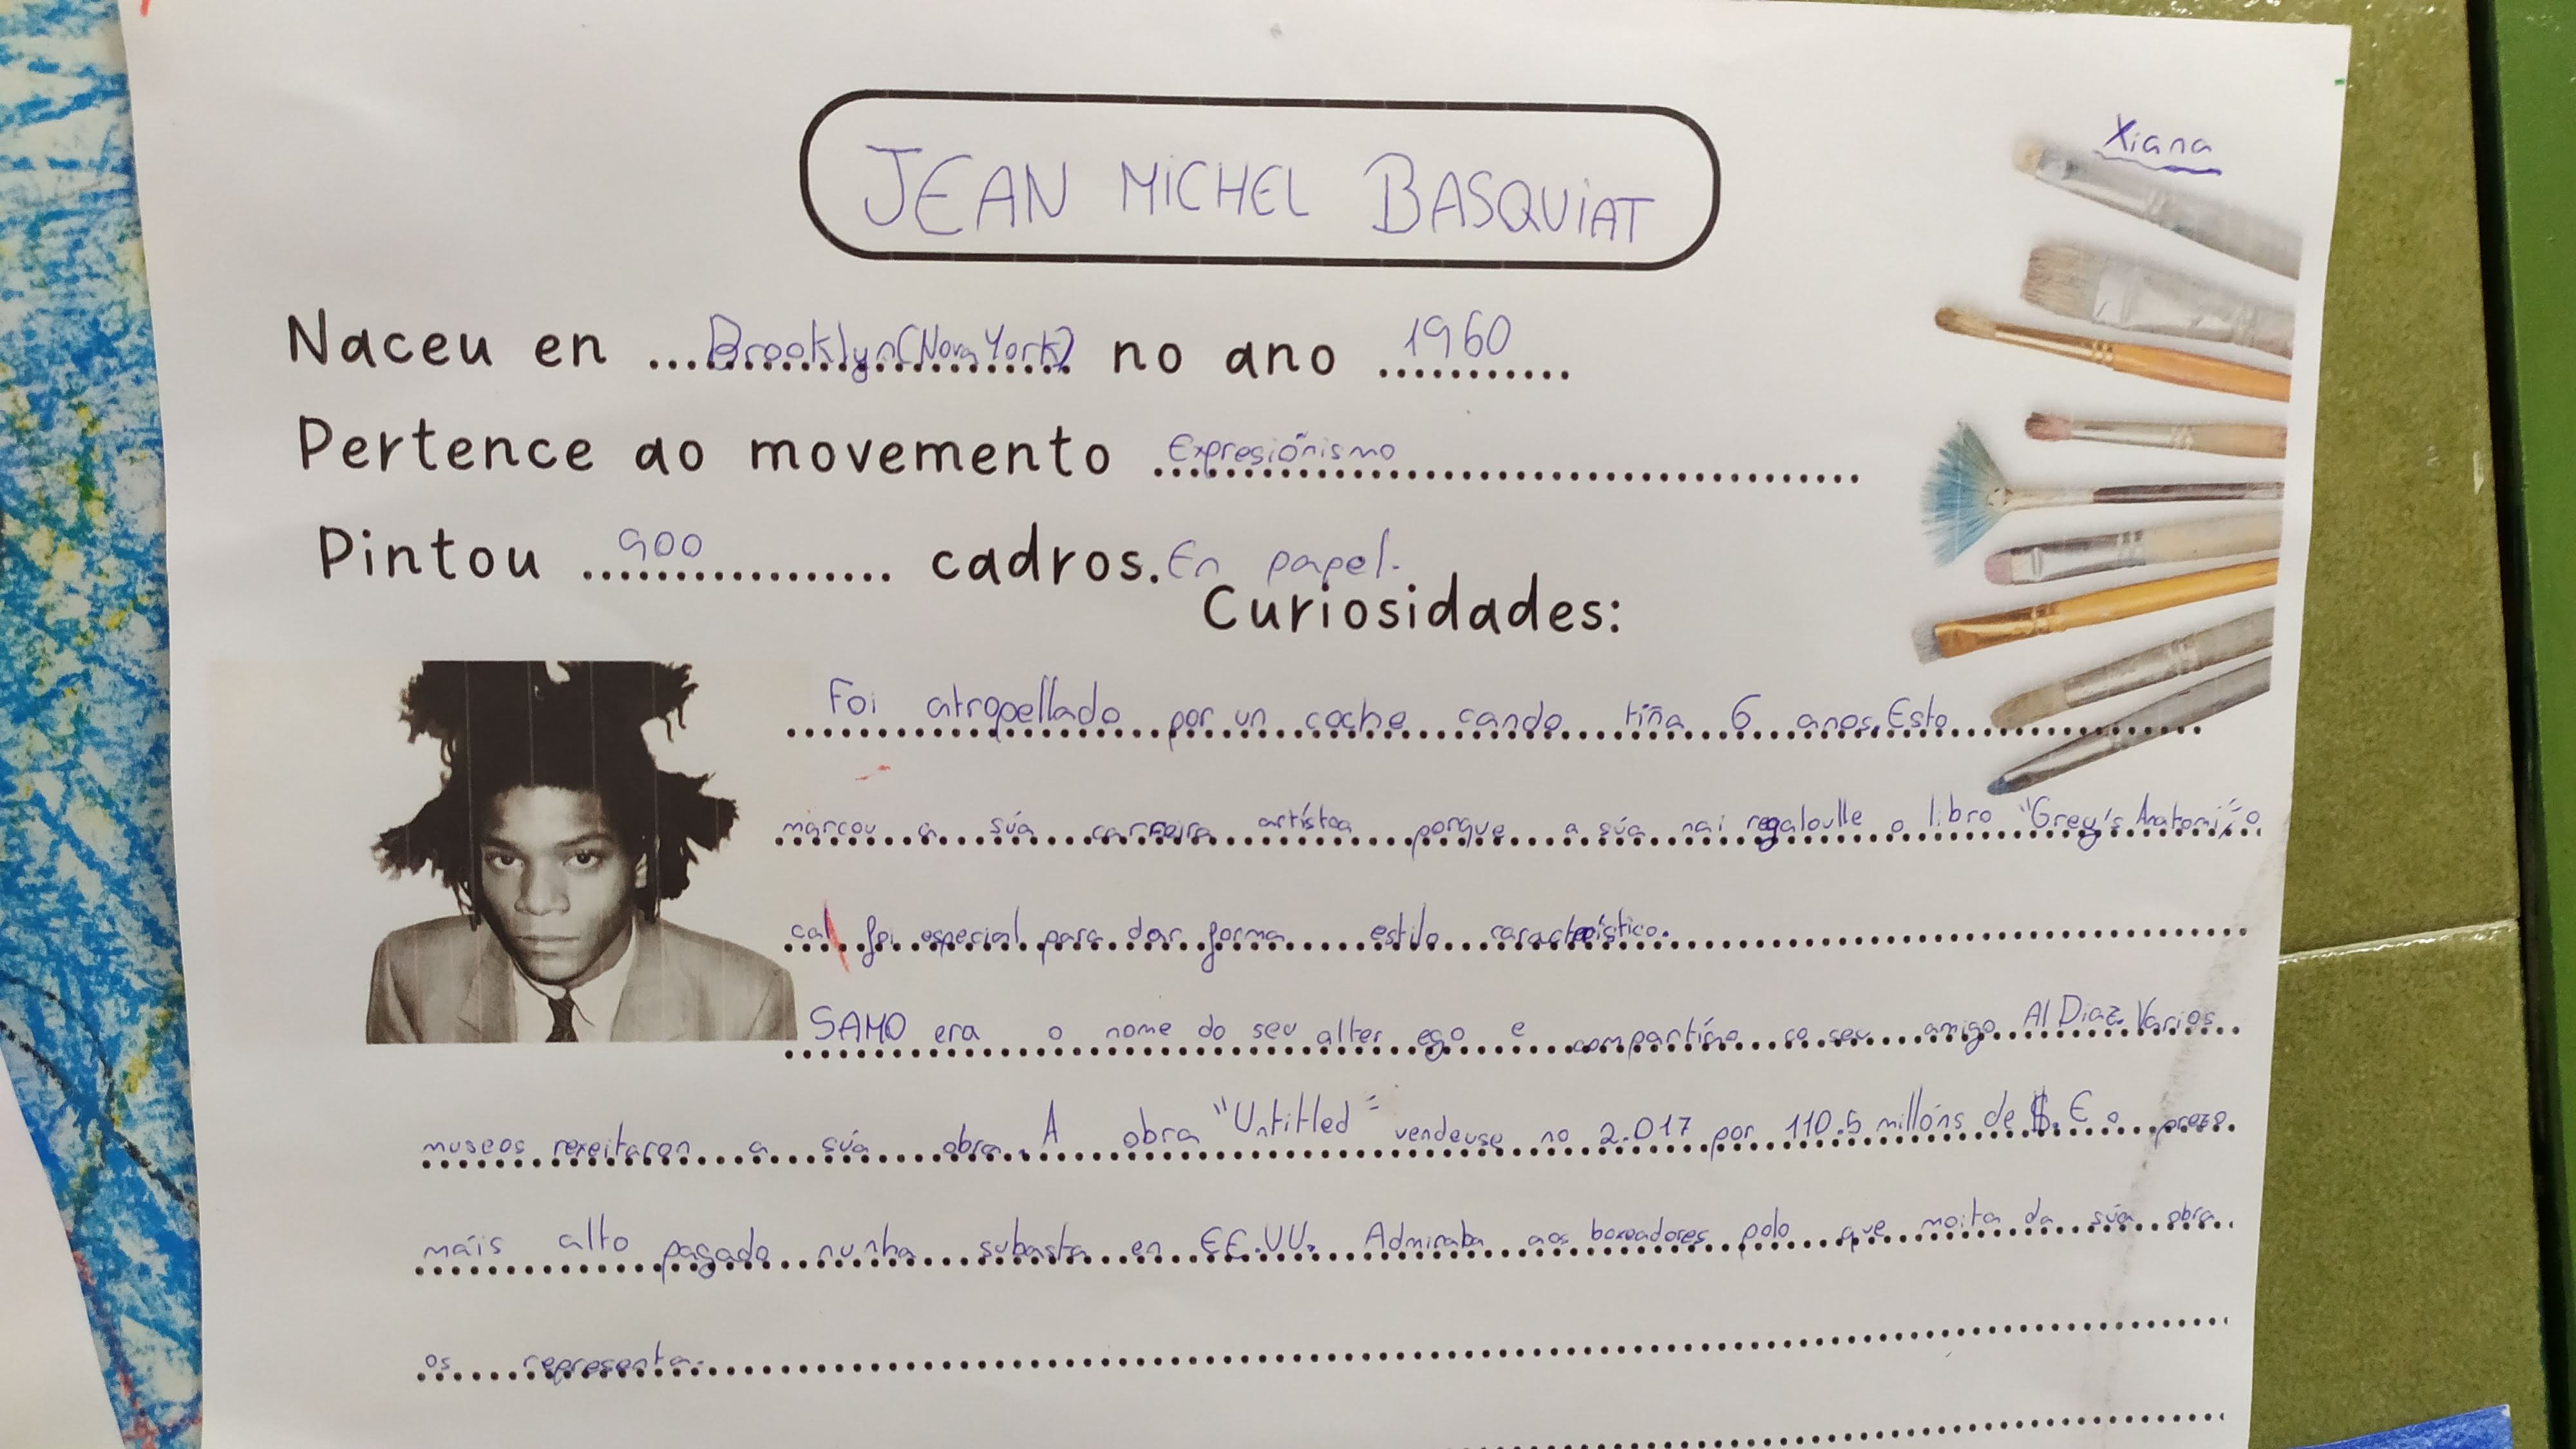 Xiana
JEAN MiCHEL BASQUiAT
Naceu en ...Brooklyn(Nova York) no ano 1960
Pertence ao movemento Expresiónismo
Pintou 900 cadros. En papel.
Curiosidades:
Foi atropellado por un coche cando tiña 6 anos. Esto
marcou a súa carreira artística porque a súa nai regaloulle o libro "Grey's Anatomi" o
cal foi especial para dar forma estilo característico.
SAMO era o nome do seu alter ego e compartíao co seu amigo Al Diaz. Varios
museos rexeitaron a súa obra. A obra "Untitled" vendeuse no 2.017 por 110.5 millóns de $. É o prezo
máis alto pagado nunha subasta en EE.UU. Admiraba aos boxeadores polo que moita da súa obra
os representa.